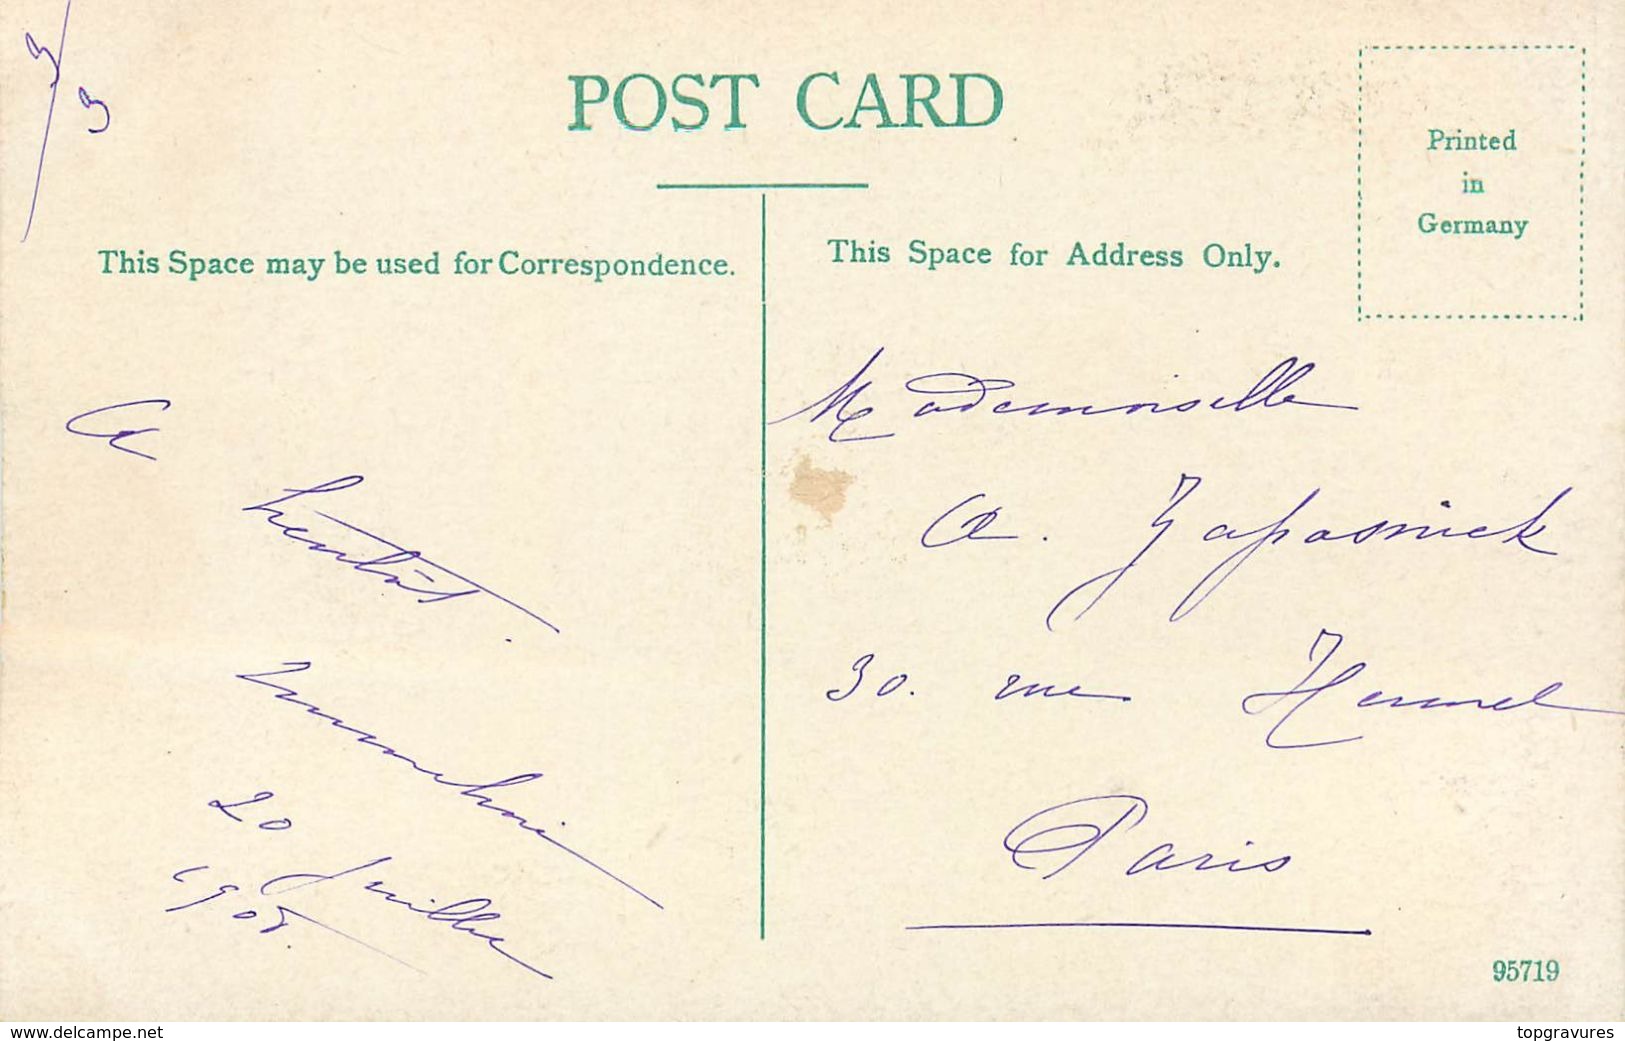 3/3
POST CARD
Printed
in
Germany
This Space may be used for Correspondence.
This Space for Address Only.
A
bientôt.
20 Juillet
1905.
Mademoiselle
A. Zaposnick
30. rue Hermel
Paris
95719
www.delcampe.net
topgravures